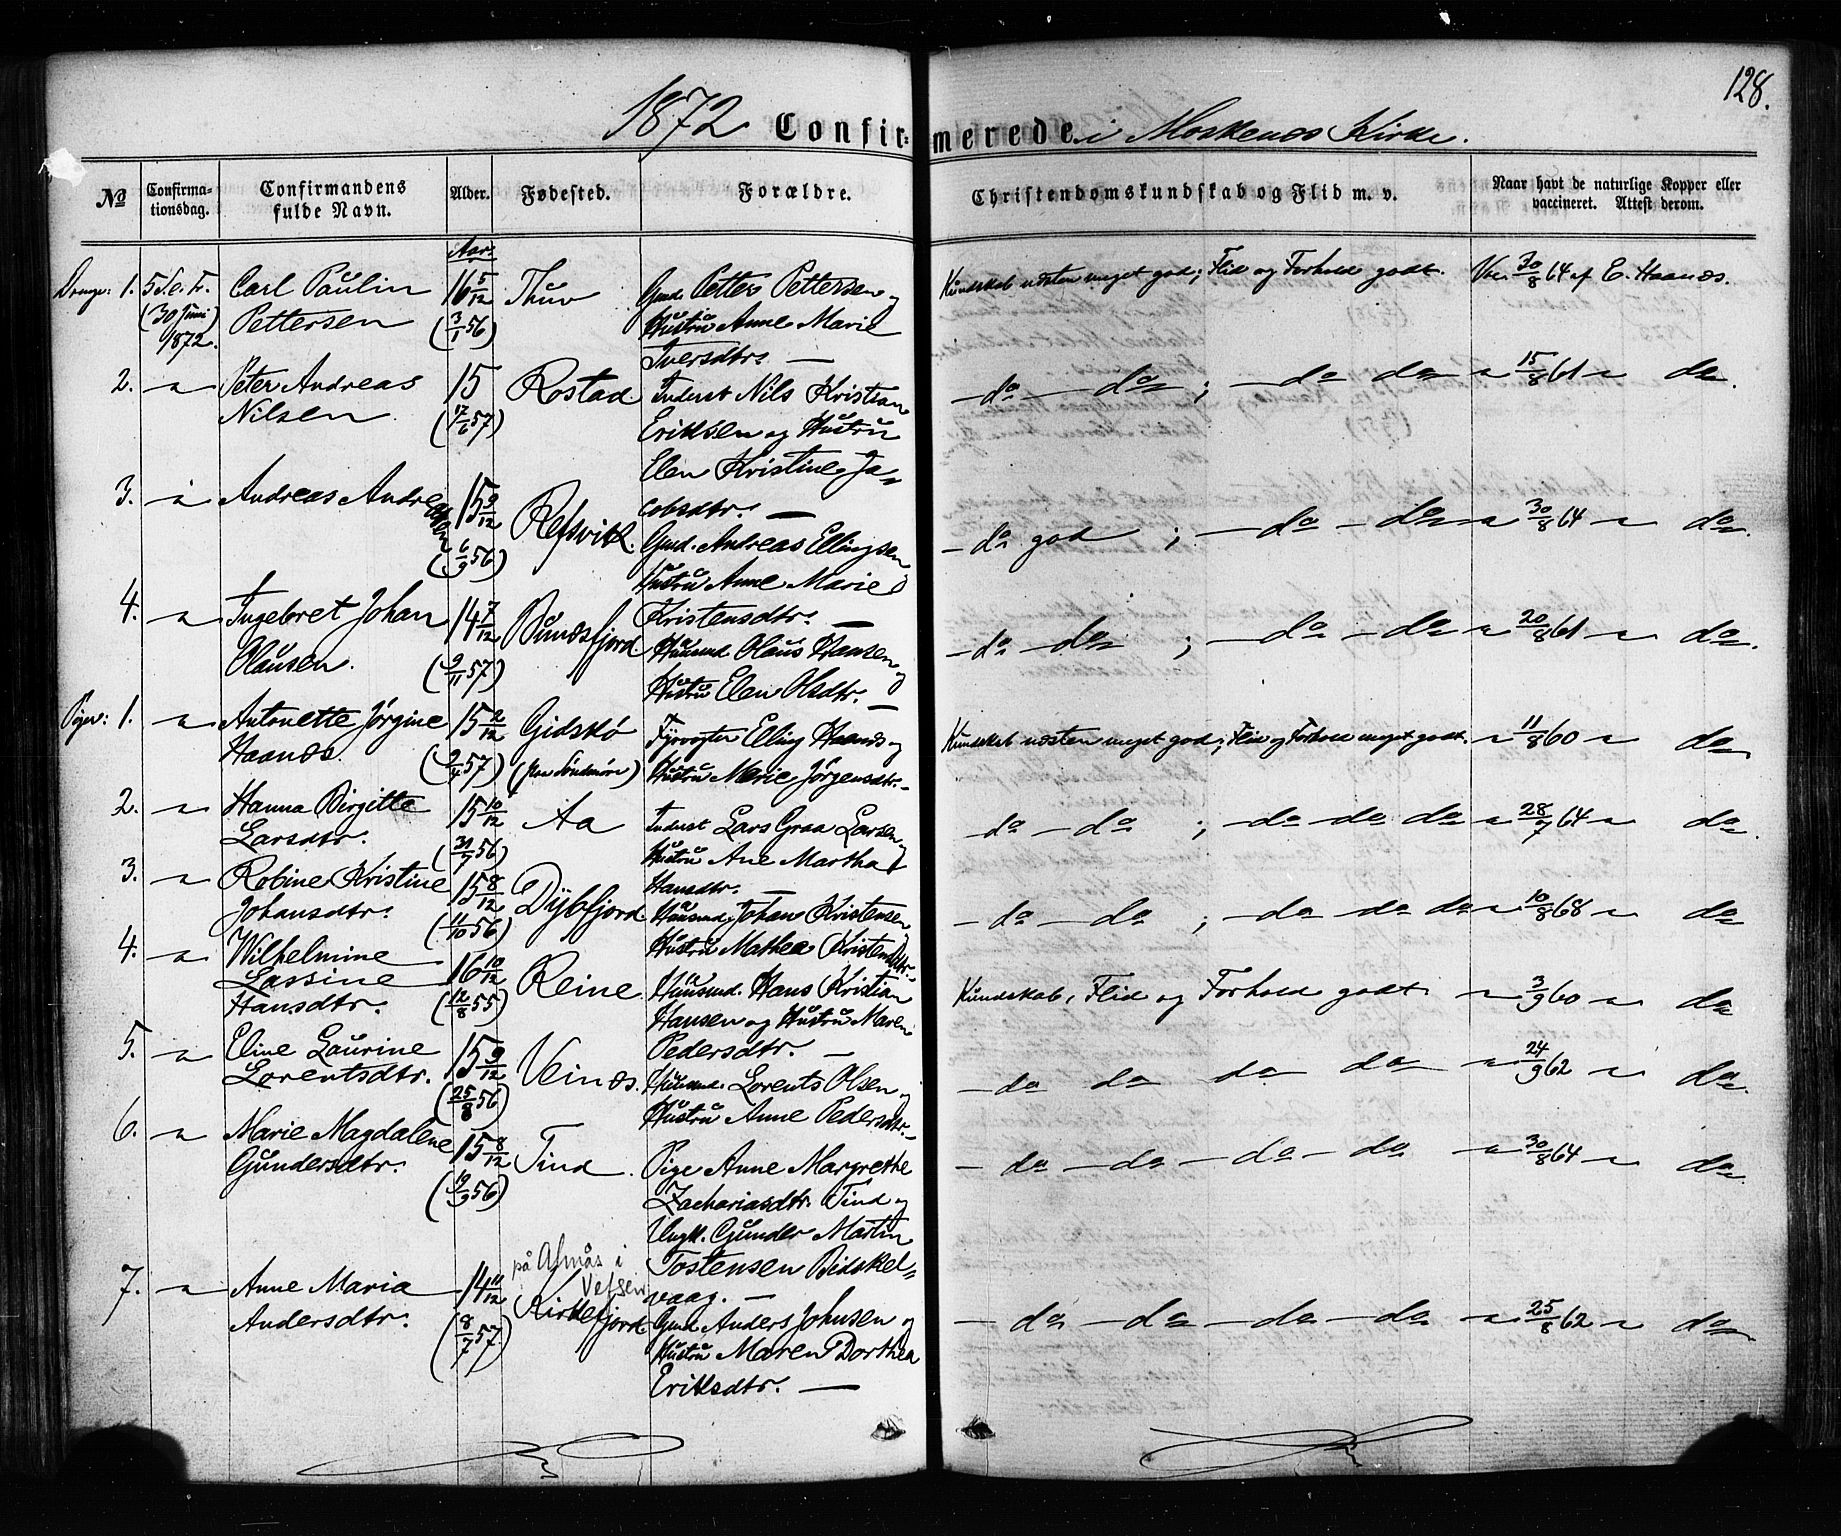 128.
1872 Confirmerede i Moskenæs Kirke.
No Confirmationsdag. Confirmandens fulde Navn. Alder. Fødested. Forældre. Christendomskundskab og Flid m. v. Naar havt de naturlige Kopper eller vaccineret. Attest derom.
Aar.
Drenge: 1. 5 S. e. Tr. Carl Paulin 16 5/12 Thuv Gmd. Petter Pettersen og Kundskab næsten meget god; Flid og Forhold godt. Vac. 30/8 64 af E. Haanæs.
(30 Juni) Pettersen (3/1 56) Hustru Anne Marie
1872. Iversdtr. —
2. " Peter Andreas 15 Rostad Inderst Nils Kristian — do — do ; — do do " 15/8 61 " do.
Nilsen (17/6 57) Eriksen og Hustru
Elen Kristine Ja-
3. " Andreas Andreassen 15 9/12 Refsvik cobsdtr. — — do god ; — do — do " 30/8 64 " do.
(6/9 56) Gmd. Andreas Ellingsen
Hustru Anne Marie
4. " Ingebret Johan 14 7/12 Bunæsfjord Kristensdtr. — — do — do ; — do — do " 20/8 61 " do.
Olausen. (9/11 57) Husmd. Olaus Hansen og
Hustru Elen Olsdtr. —
Piger: 1. " Antonette Jørgine 15 2/12 Gidskø Fyrvogter Elling Haanæs og Kundskab næsten meget god; Flid og Forhold meget godt. " 11/8 60 " do
Haanæs. (2/4 57) (paa Søndmøre) Hustru Marie Jørgensdtr. —
2. " Hanna Birgitte 15 10/12 Aa Inderst Lars Graa Larsen og — do — do ; — do do do " 28/7 64 " do.
Larsdtr. (31/7 56) Hustru Ane Martha
3. " Robine Kristine 15 8/12 Dybfjord Hansdtr. —
Johansdtr. (11/10 56) Husmd. Johan Kristensen — do — do ; — do do do " 10/8 68 " do
4. " Wilhelmine 16 10/12 Reine Hustru Mathea Kristensdtr. —
Lassine (12/8 55) Husmd. Hans Kristian Kundskab, Flid og Forhold godt " 3/9 60 " do
Hansdtr. Hansen og Hustru Maren
5. " Eline Laurine 15 9/12 Veinæs. Pedersdtr. —
Lorentsdtr. (25/8 56) Husmd. Lorents Olsen og — do do do do " 24/9 62 " do.
Hustru Anne Pedersdtr. —
6. " Marie Magdalene 15 8/12 Tind. Pige Anne Margrethe — do — do — do — do " 30/8 64 " do.
Gundersdtr. (19/9 56) Zachariasdtr. Tind og
Ungk. Gunder Martin
på Almås i Tostensen Bidskel-
Vefsen
7. " Anne Maria 14 11/12 Kirkefjord vaag. —
Andersdtr. (8/7 57) Gmd. Anders Johnsen og — do — do — do — do " 25/8 62 " do
Hustru Maren Dorthea
Eriksdtr. —